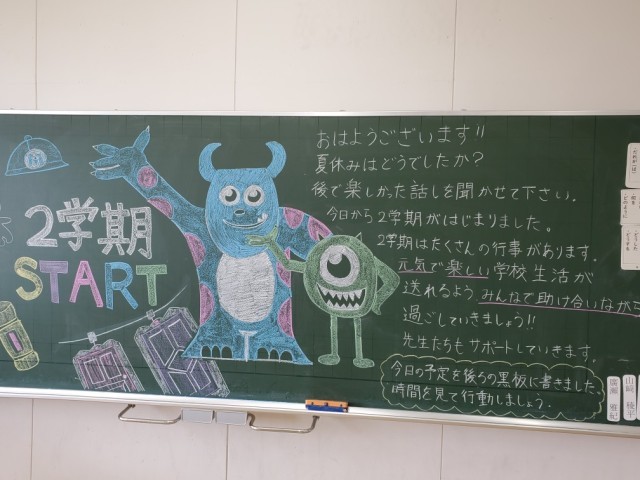 2学期
START
おはようございます!!
夏休みはどうでしたか?
後で楽しかった話しを聞かせて下さい。
今日から2学期がはじまりました。
2学期はたくさんの行事があります。
元気で楽しい学校生活が
送れるよう みんなで助け合いながら
過ごしていきましょう!!
先生たちもサポートしていきます。
今日の予定を後ろの黒板に書きました
時間を見て行動しましょう.